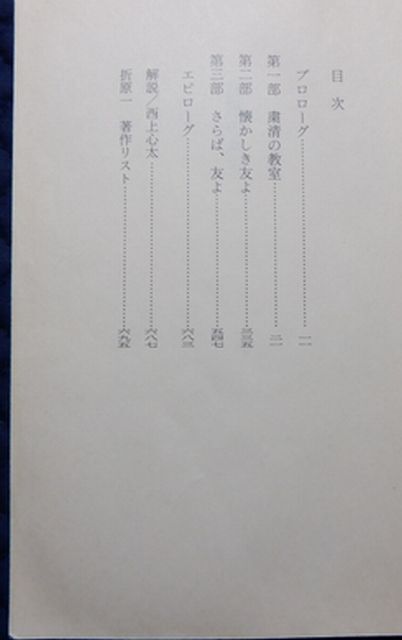 目次
プロローグ……………………一一
第一部 粛清の教室……………………二一
第二部 懐かしき友よ……………………三三五
第三部 さらば、友よ……………………五四七
エピローグ……………………六八三
解説／西上心太……………………六八七
折原一 著作リスト……………………六九五